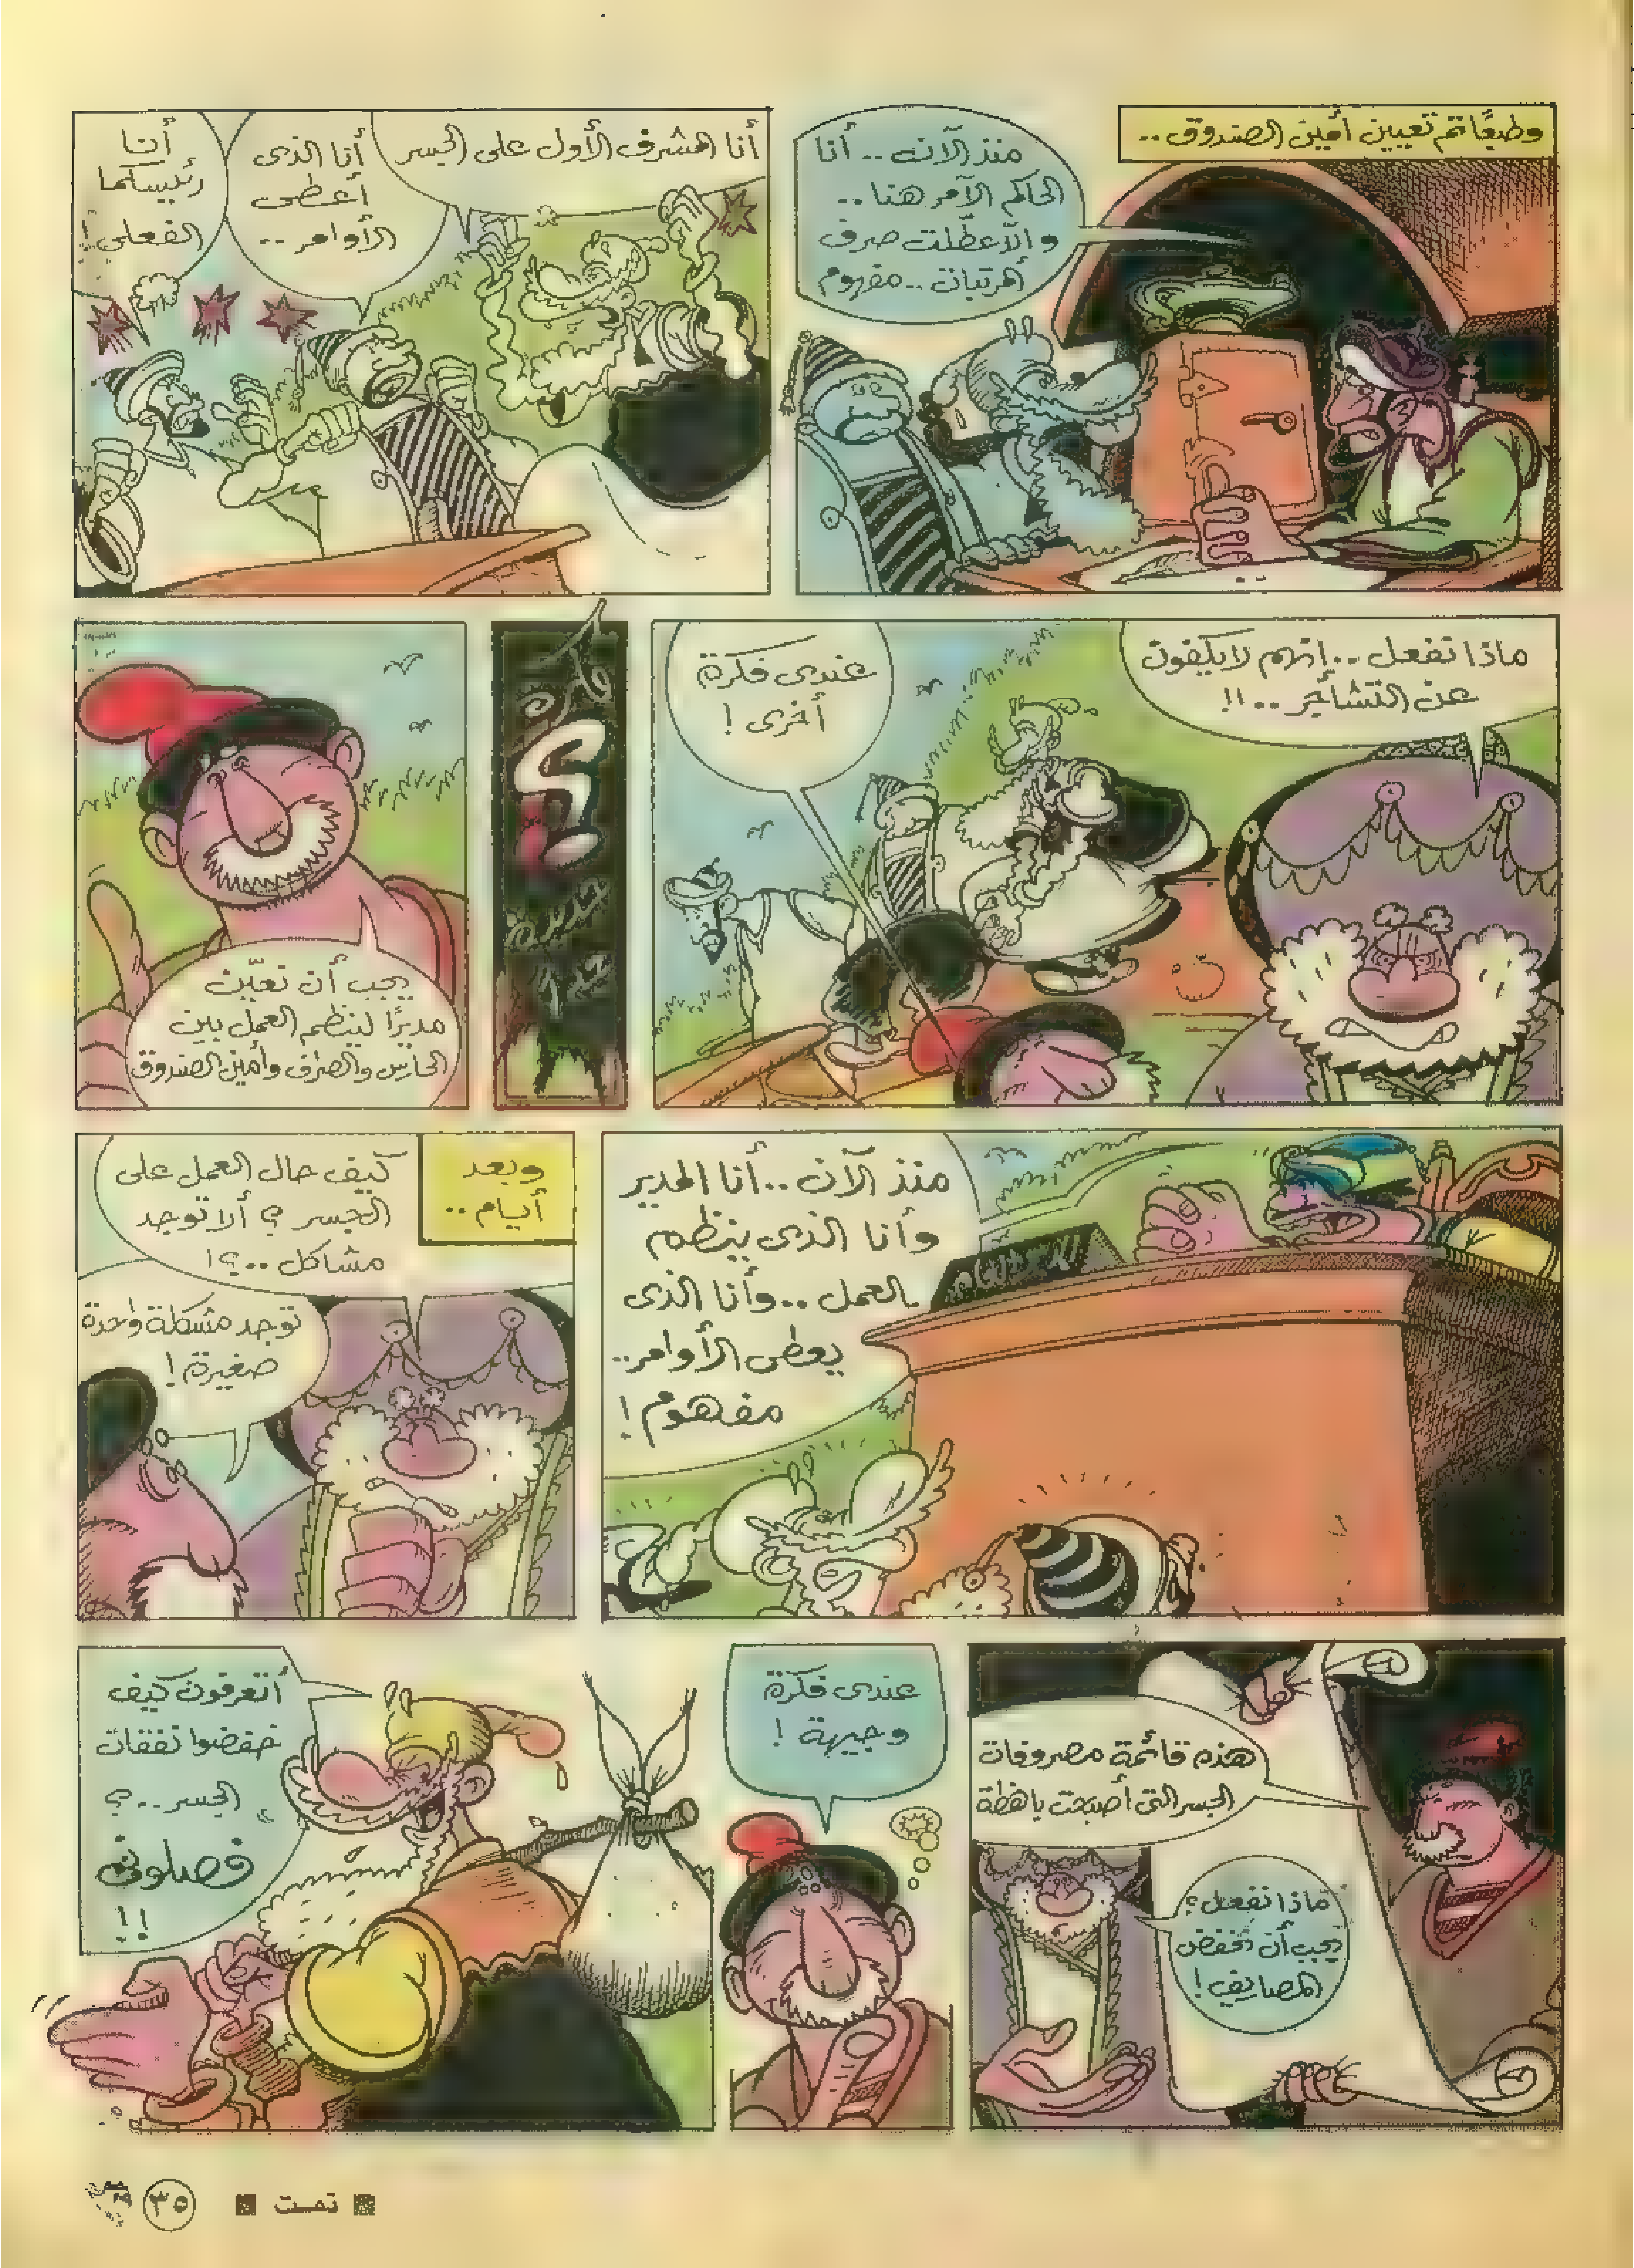 وطبعًا تم تعيين أمين الصندوق ..
منذ الآن .. أنا
الحاكم الآمر هنا ..
وإلا عطّلت صرف
المرتبات .. مفهوم
أنا المشرف الأول على الجسر
أنا الذى
أعطى
الأوامر ..
أنا
رئيسكما
الفعلى !
ماذا نفعل .. إنهم لا يكفون
عن التشاجر .. !!
عندى فكرة
أخرى !
يجب أن نعيّن
مديرًا لينظم العمل بين
الحارس والصراف وأمين الصندوق
منذ الآن .. أنا المدير
وأنا الذى ينظم
العمل .. وأنا الذى
يعطى الأوامر ..
مفهوم !
وبعد
أيام ..
كيف حال العمل على
الجسر ؟ ألا توجد
مشاكل .. ؟!
توجد مشكلة واحدة
صغيرة !
هذه قائمة مصروفات
الجسر التى أصبحت باهظة
ماذا نفعل ؟
يجب أن نخفض
المصاريف !
عندى فكرة
وجيهة !
أتعرفون كيف
خفضوا نفقات
الجسر .. ؟
فصلونى
!!
تمت
٣٥